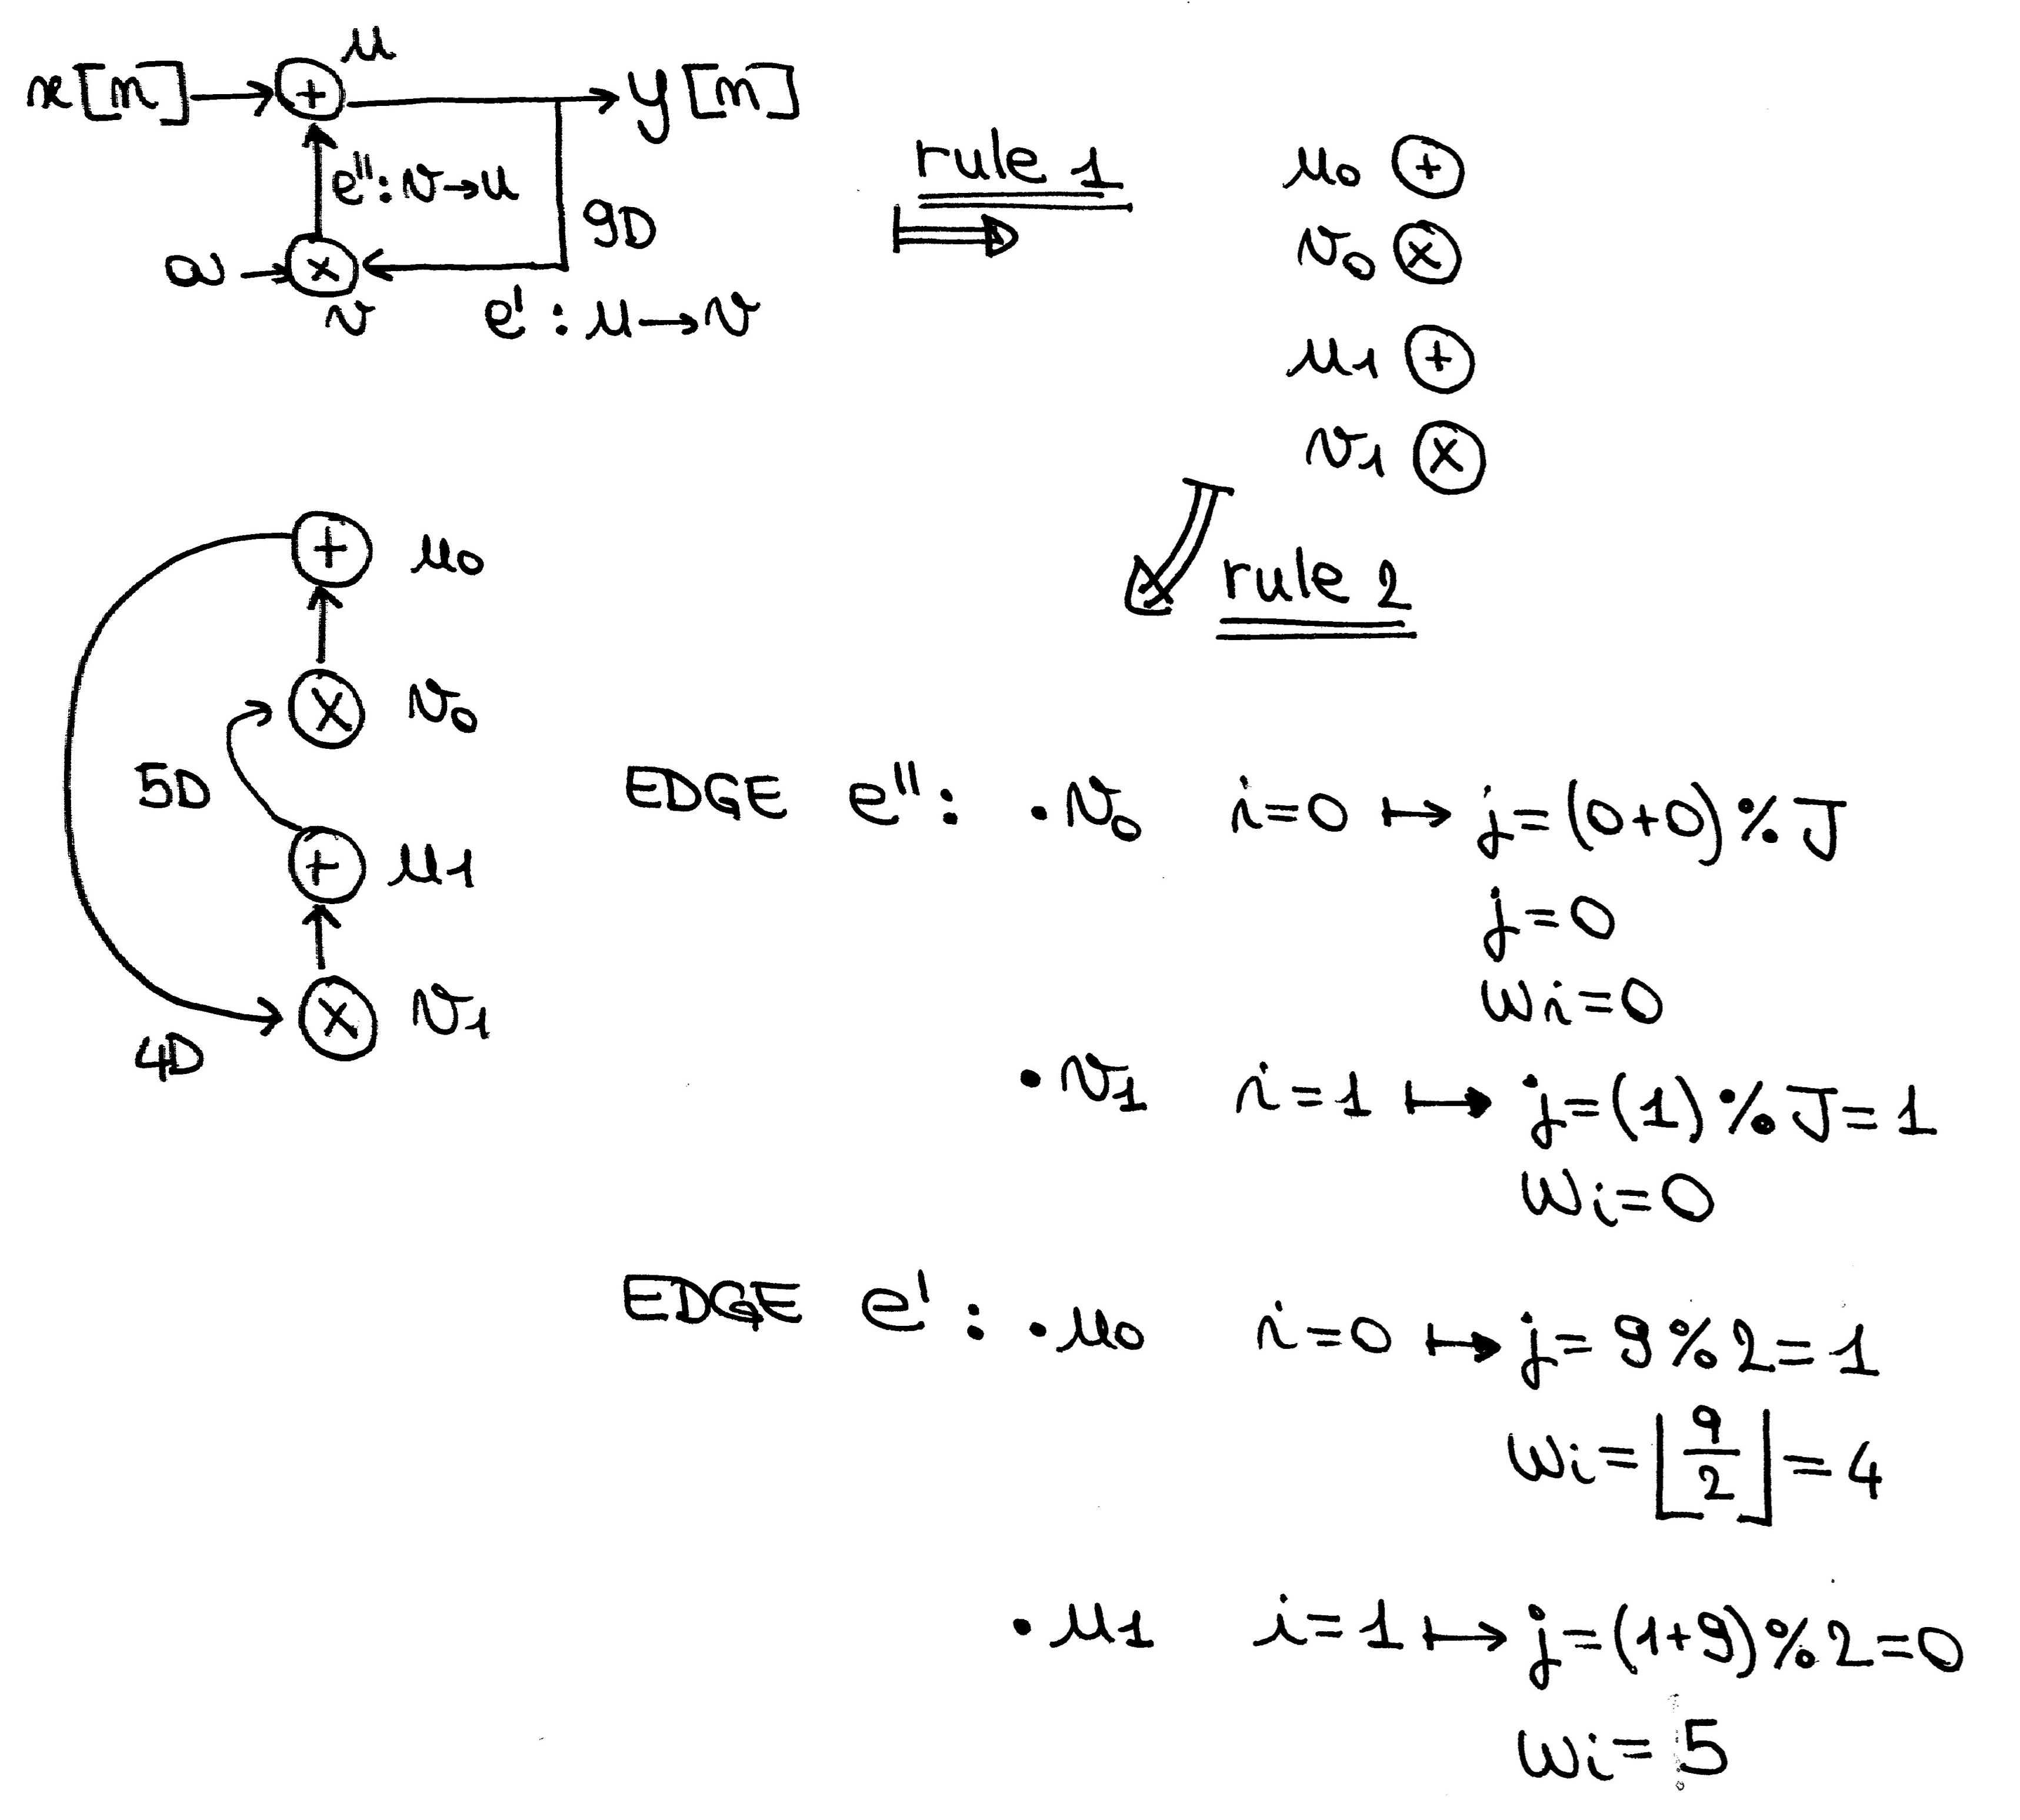 x[n] + u y[n]
e'': v→u
9D
a × v
e' : u→v
rule 1
u0 +
v0 ×
u1 +
v1 ×
rule 2
+ u0
× v0
5D
+ u1
× v1
4D
EDGE e'': • v0 i=0 ↦ j=(0+0)%J
j=0
wi=0
• v1 i=1 ↦ j=(1)%J=1
wi=0
EDGE e' : • u0 i=0 ↦ j=9%2=1
wi=⌊9/2⌋=4
• u1 i=1 ↦ j=(1+9)%2=0
wi=5